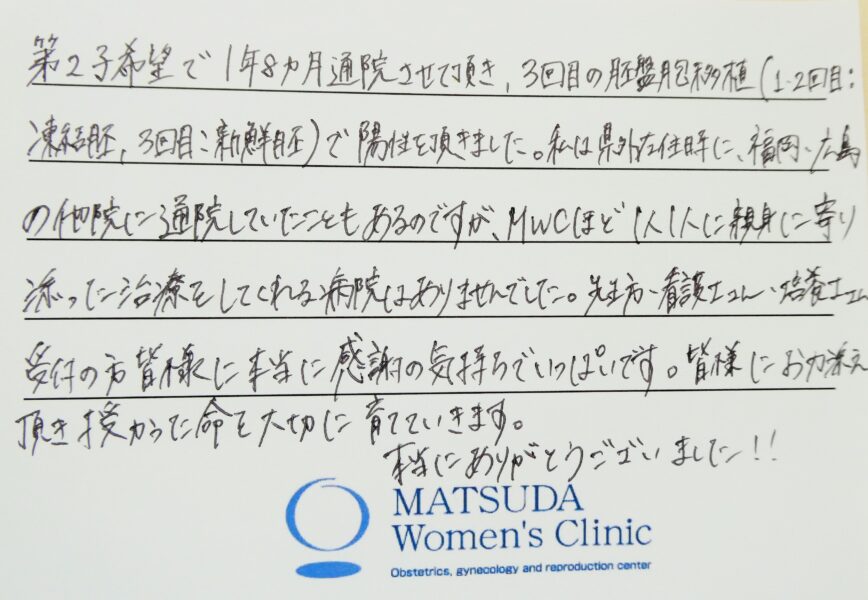 第2子希望で1年8カ月通院させて頂き、3回目の胚盤胞移植(1・2回目:
凍結胚、3回目:新鮮胚)で陽性を頂きました。私は県外在住時に、福岡・広島
の他院に通院していたこともあるのですが、MWCほど1人1人に親身に寄り
添った治療をしてくれる病院はありませんでした。先生方・看護士さん・培養士さん
受付の方皆様に本当に感謝の気持ちでいっぱいです。皆様にお力添え
頂き授かった命を大切に育てていきます。
本当にありがとうございました!!
MATSUDA
Women's Clinic
Obstetrics, gynecology and reproduction center